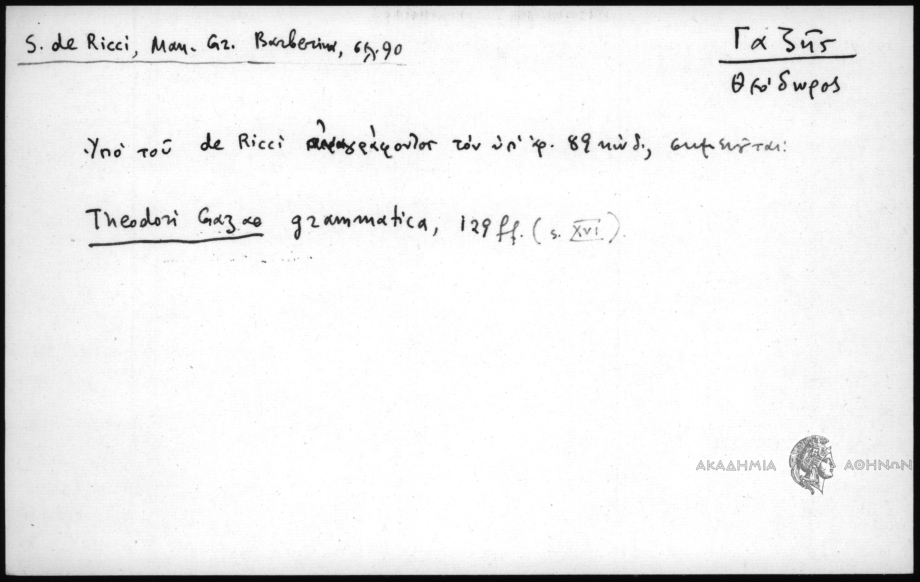 S. de Ricci, Man. Gr. Barberin, σλ. 90
Γαζῆς
Θεόδωρος
Ὑπὸ τοῦ de Ricci περιγράφοντος τὸν ὑπ' ἀρ. 89 κώδ., σημειοῦται:
Theodori Gazae grammatica, 129 ff. (s. XVI).
ΑΚΑΔΗΜΙΑ ΑΘΗΝΩΝ